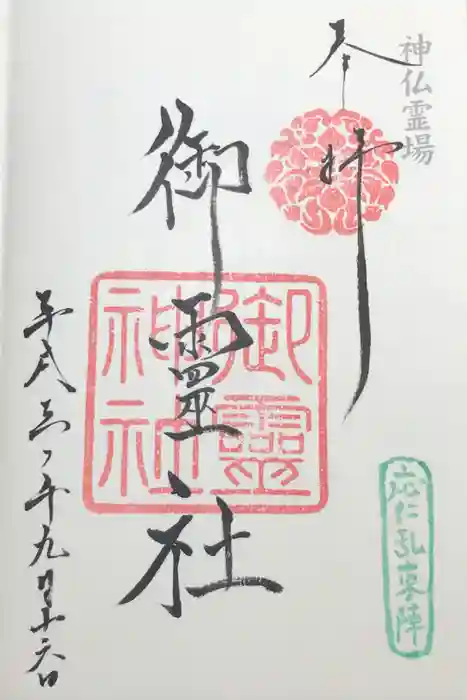 神仏霊場
奉拝
御靈社
御靈神社
応仁乱東陣
平成三十年九月十六日